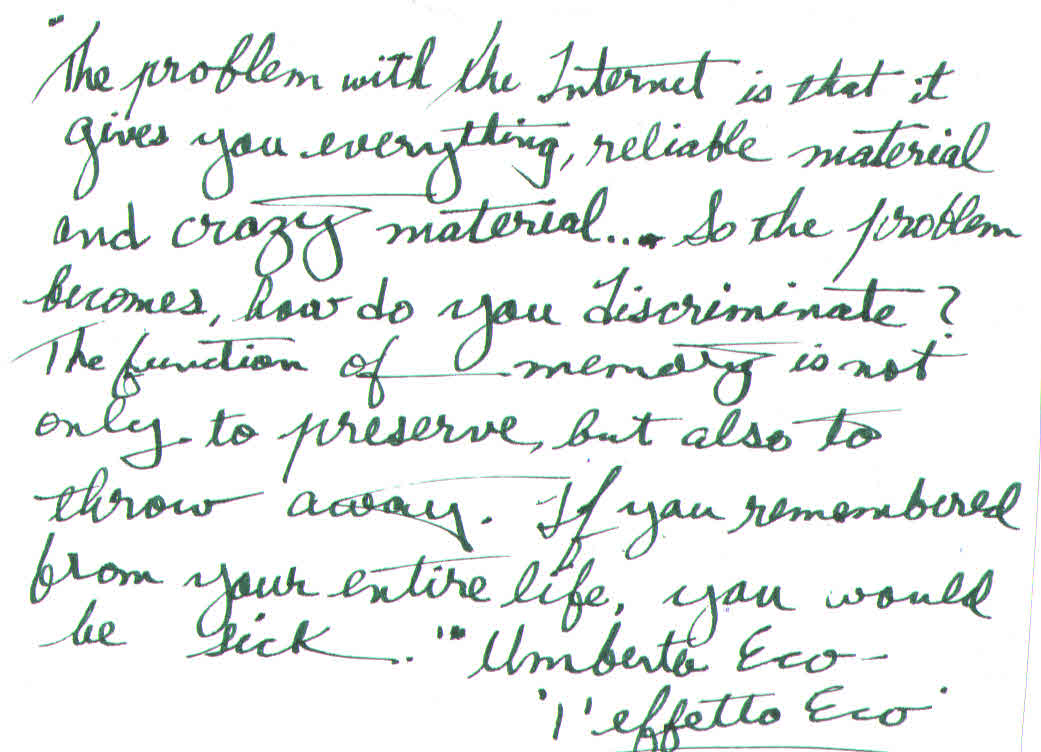 "The problem with the Internet is that it
gives you everything, reliable material
and crazy material.... So the problem
becomes, how do you discriminate?
The function of memory is not
only to preserve, but also to
throw away. If you remembered
from your entire life, you would
be sick." Umberto Eco-
'l'effetto Eco'